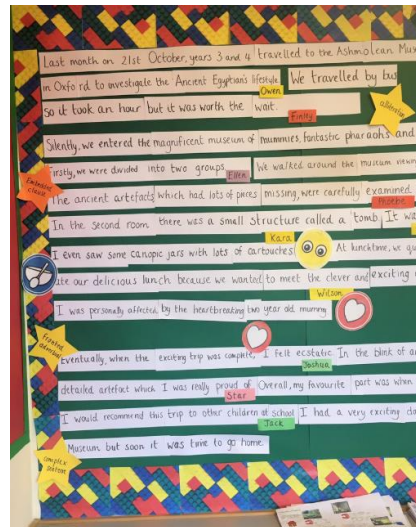 Last month on 21st October, years 3 and 4 travelled to the Ashmolean
in Oxford to investigate the Ancient Egyptian's lifestyle. We travelled by bus
Owen
so it took an hour but it was worth the wait.
Finley
alliteration
Silently, we entered the magnificent museum of mummies, fantastic pharaohs and
Firstly, we were divided into two groups. We walked around the museum viewing
Ellen
Embedded clause
The ancient artefacts which had lots of pieces missing, were carefully examined.
Phoebe
In the second room there was a small structure called a tomb. It
Kara
I even saw some canopic jars with lots of cartouches. At lunchtime, we
ate our delicious lunch because we wanted to meet the clever and exciting
Wilson
I was personally affected by the heartbreaking two year old mummy
Fronted adverbial
Eventually, when the exciting trip was complete, I felt ecstatic. In the blink of
Joshua
detailed artefact which I was really proud of. Overall, my favourite part was when
Star
I would recommend this trip to other children at school. I had a very exciting
Jack
Museum but soon it was time to go home.
complex sentence